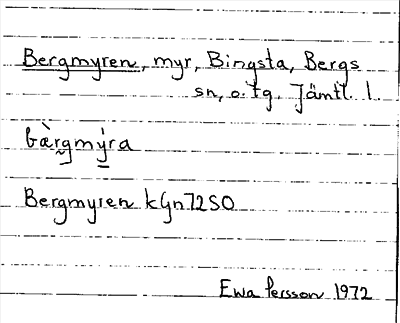 Bergmyren, myr, Bingsta, Bergs
sn, o. tg. Jämtl. l.
bàrgmýra
Bergmyren kGn72SO
Ewa Persson 1972